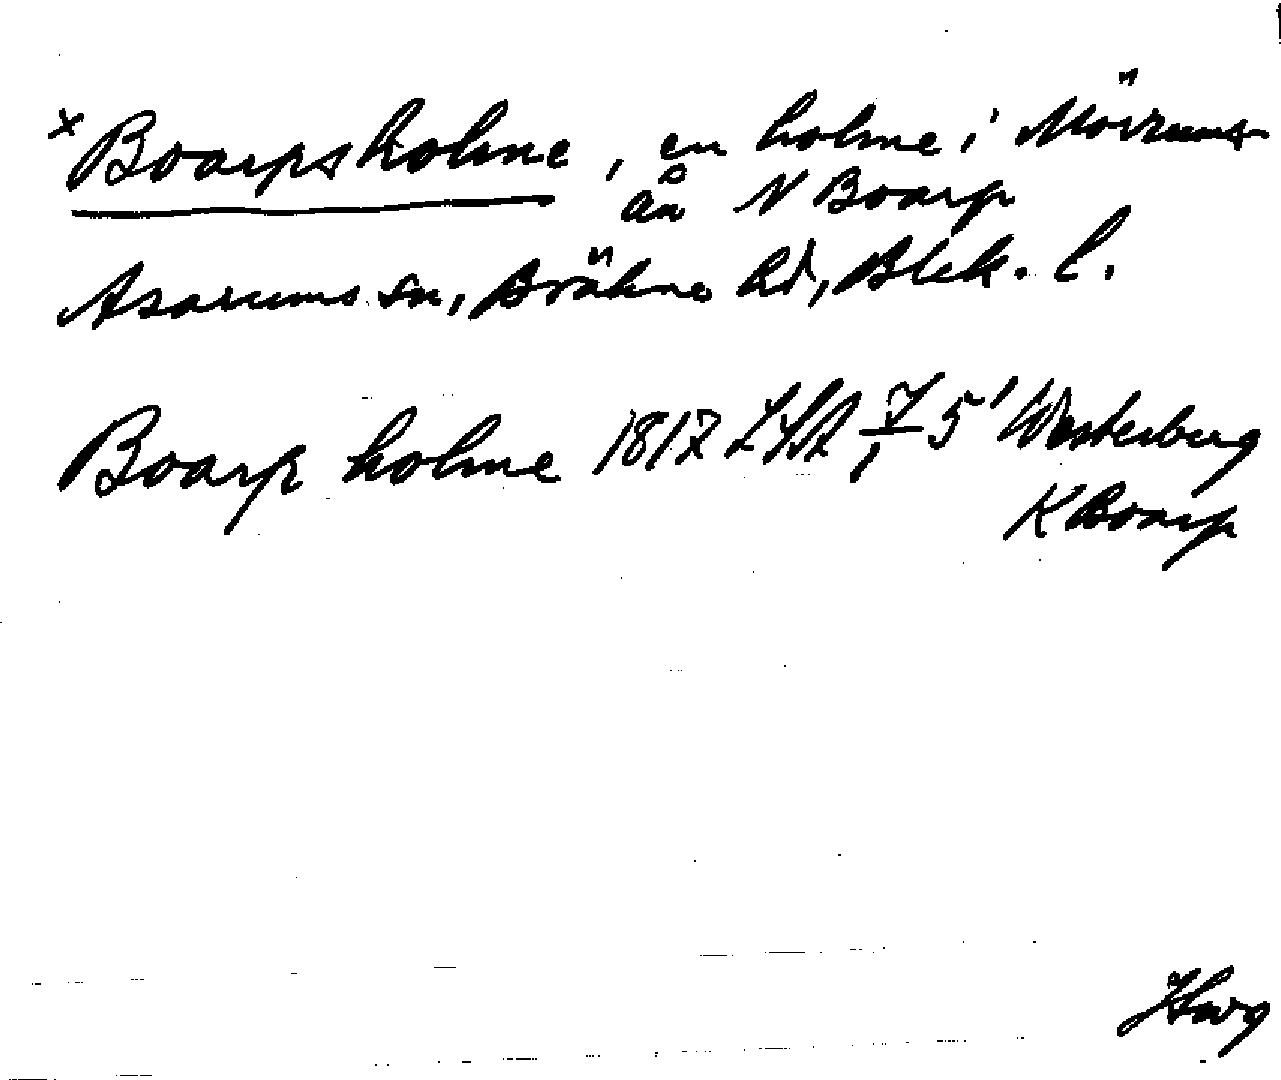 × Boarpsholme, en holme i Mörrums-
ån N Boarp
Asarums sn, Bräkne hd, Blek. l.
Boarp holme 1817 LSA 5' Westerberg
K Boarp